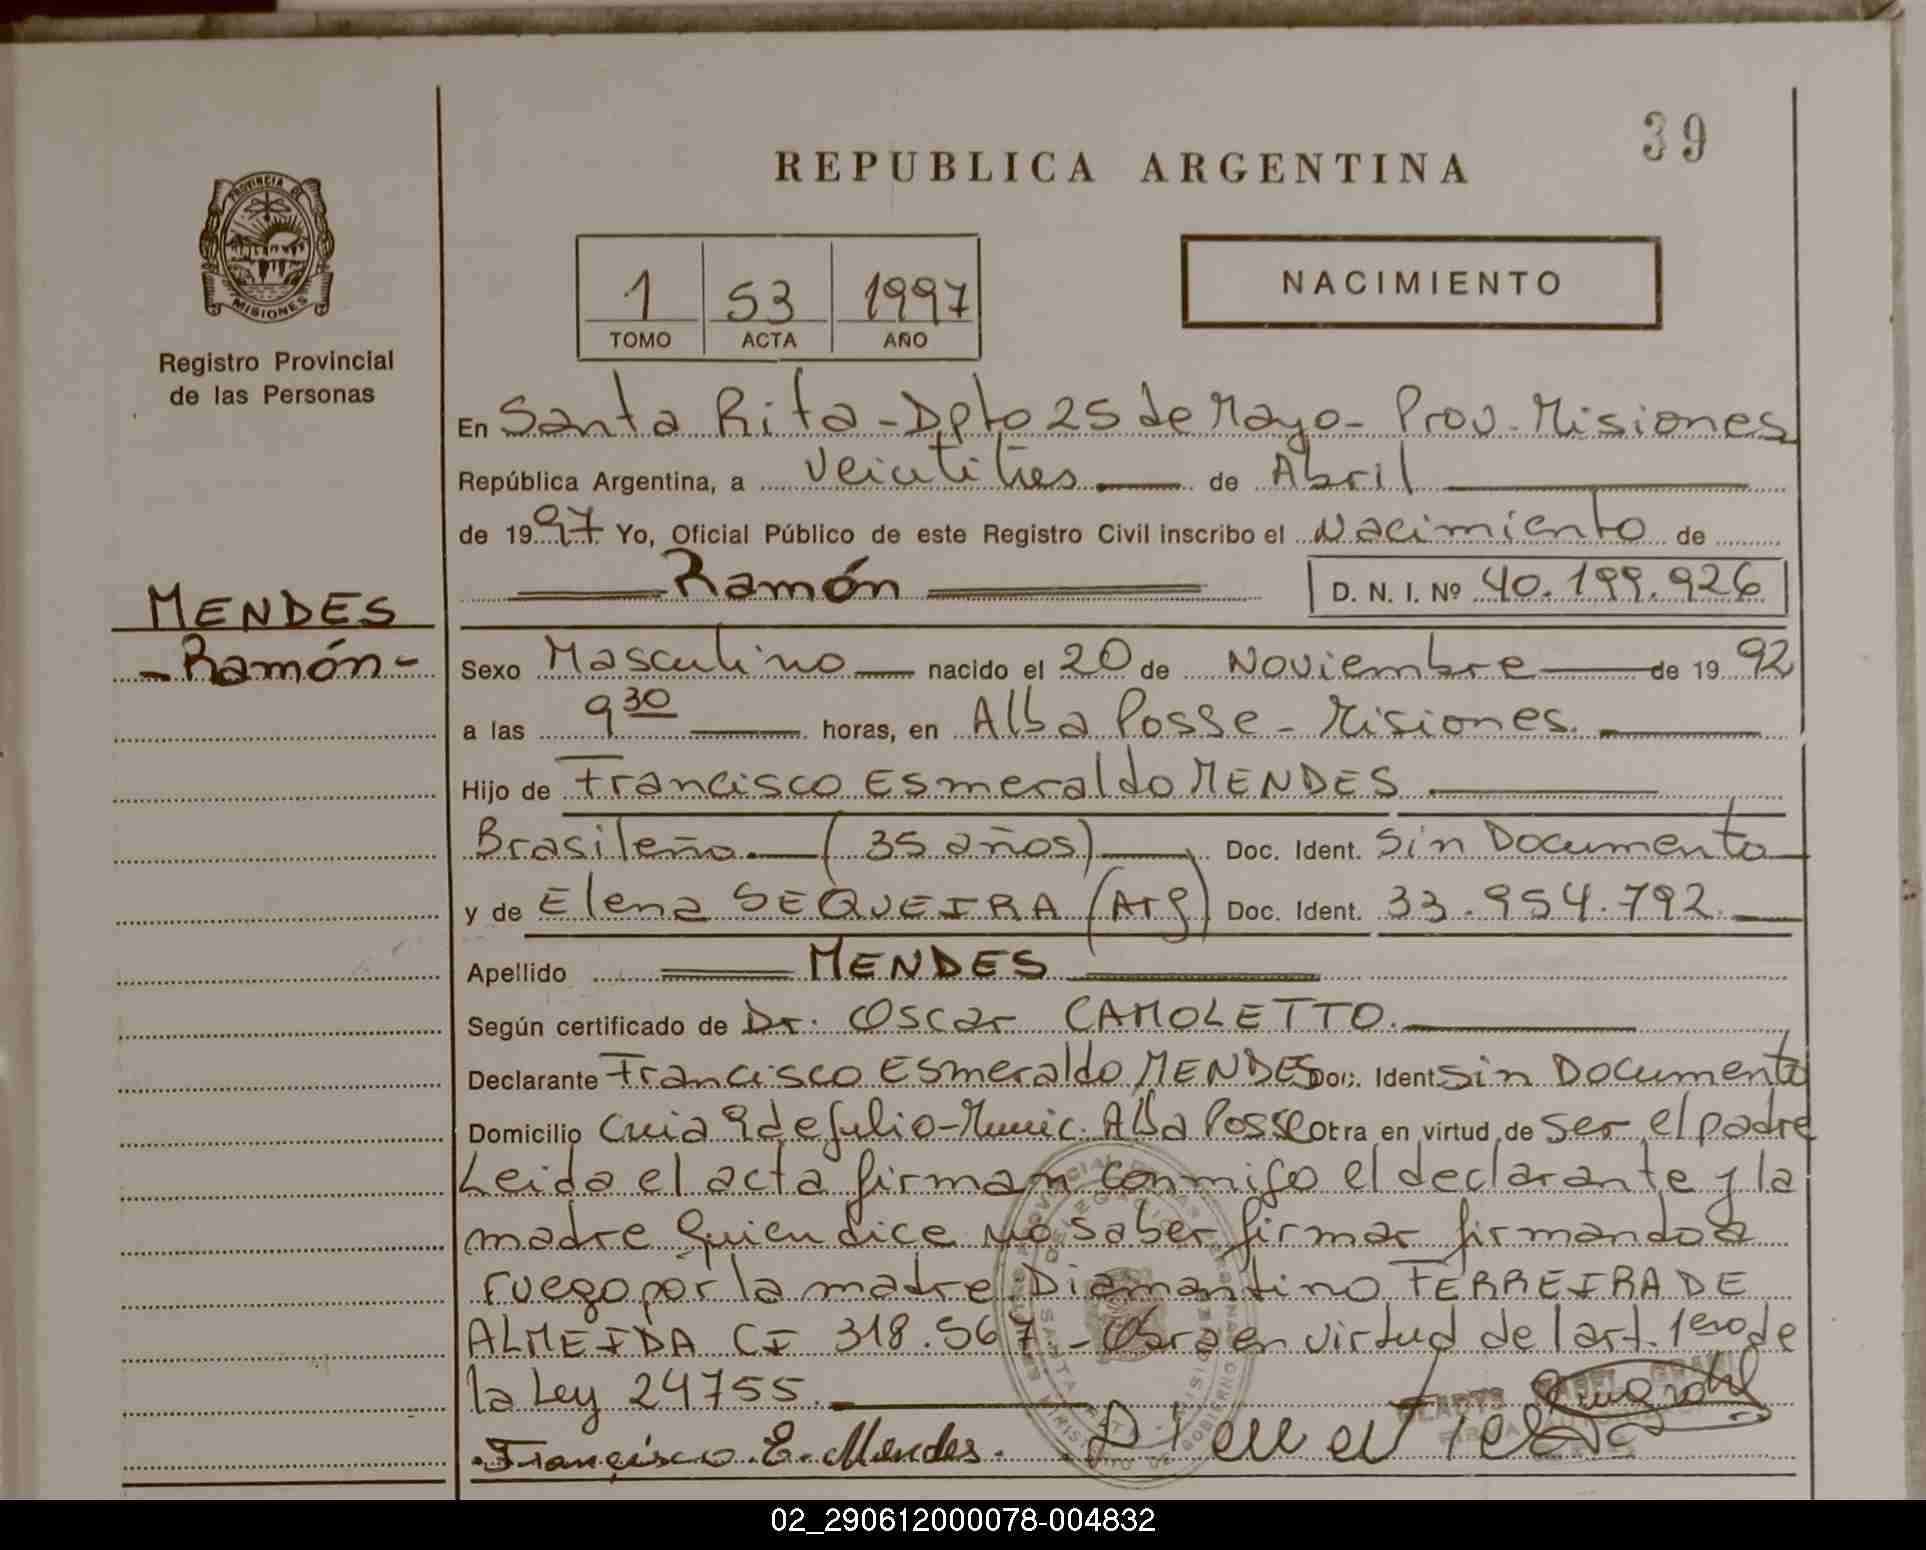 39
REPUBLICA ARGENTINA
PROVINCIA DE
MISIONES
Registro Provincial
de las Personas
1 53 1997
TOMO ACTA AÑO
NACIMIENTO
En Santa Rita - Dpto 25 de Mayo - Prov. Misiones
República Argentina, a Veintitres de Abril
de 1997 Yo, Oficial Público de este Registro Civil inscribo el Nacimiento de
Ramón D. N. I. Nº 40.199.926
MENDES
- Ramón -
Sexo Masculino nacido el 20 de Noviembre de 1992
a las 9 30 horas, en Alba Posse - Misiones.
Hijo de Francisco Esmeraldo MENDES
Brasileño. (35 años) Doc. Ident. Sin Documento
y de Elena SEQUEIRA (Arg) Doc. Ident. 33.954.792.
Apellido MENDES
Según certificado de Dr. Oscar CAMOLETTO.
Declarante Francisco Esmeraldo MENDES Doc. Ident. Sin Documento
Domicilio Cuia 9 de Julio - Munic. Alba Posse Obra en virtud de ser el padre
Leida el acta firman conmigo el declarante y la
madre quien dice no saber firmar firmando a
ruego por la madre Diamantino FERREIRA DE
ALMEIDA CI 318.567 - Obra en virtud del art. 1ero de
la Ley 24755.
Francisco E. Mendes.
02_290612000078-004832